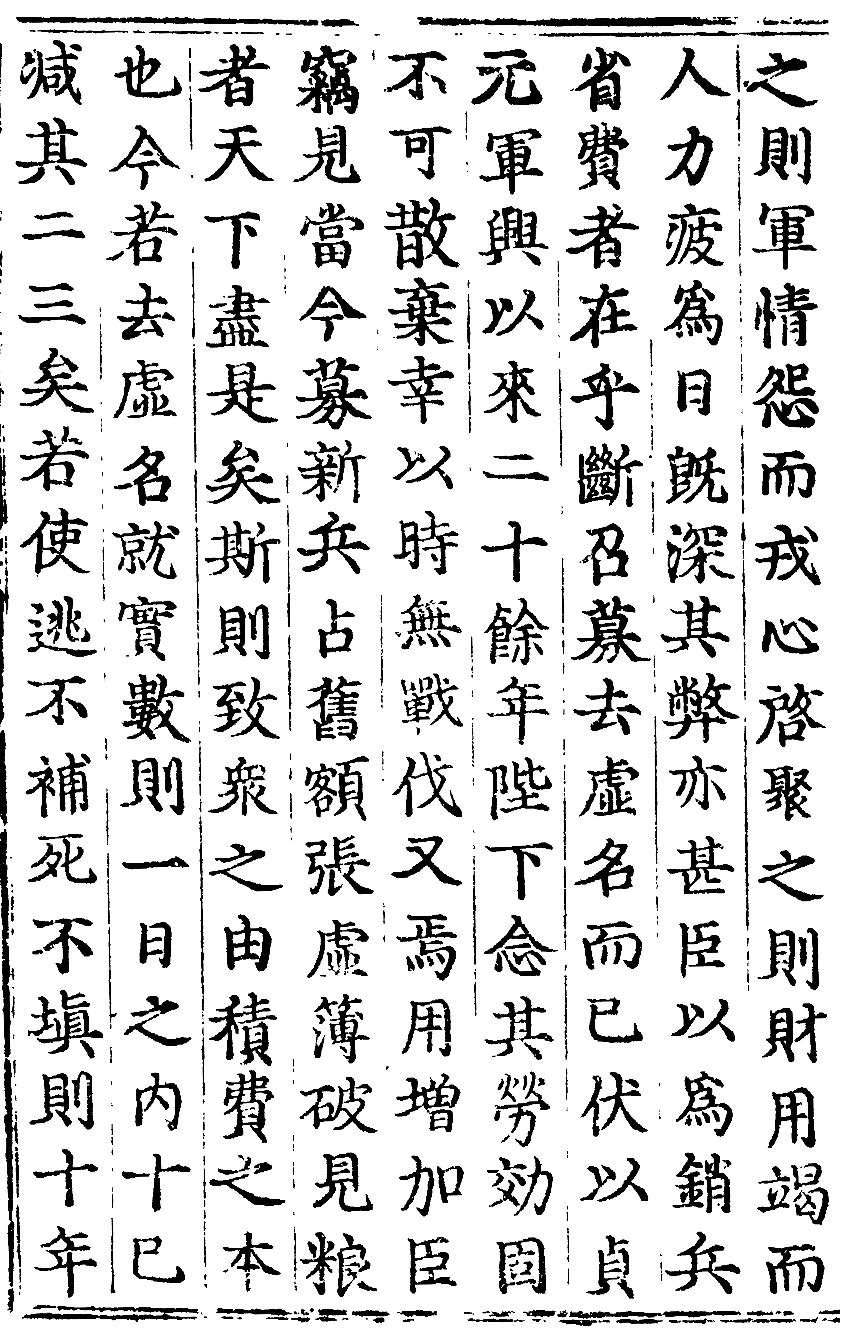 之則軍情怨而戎心啓聚之則財用竭而
人力疲爲日既深其弊亦甚臣以爲銷兵
省費者在乎斷召募去虛名而已伏以貞
元軍興以來二十餘年陛下念其勞効固
不可散棄幸以時無戰伐又焉用增加臣
竊見當今募新兵占舊額張虛簿破見粮
者天下盡是矣斯則致衆之由積費之本
也今若去虛名就實數則一日之內十已
減其二三矣若使逃不補死不塡則十年